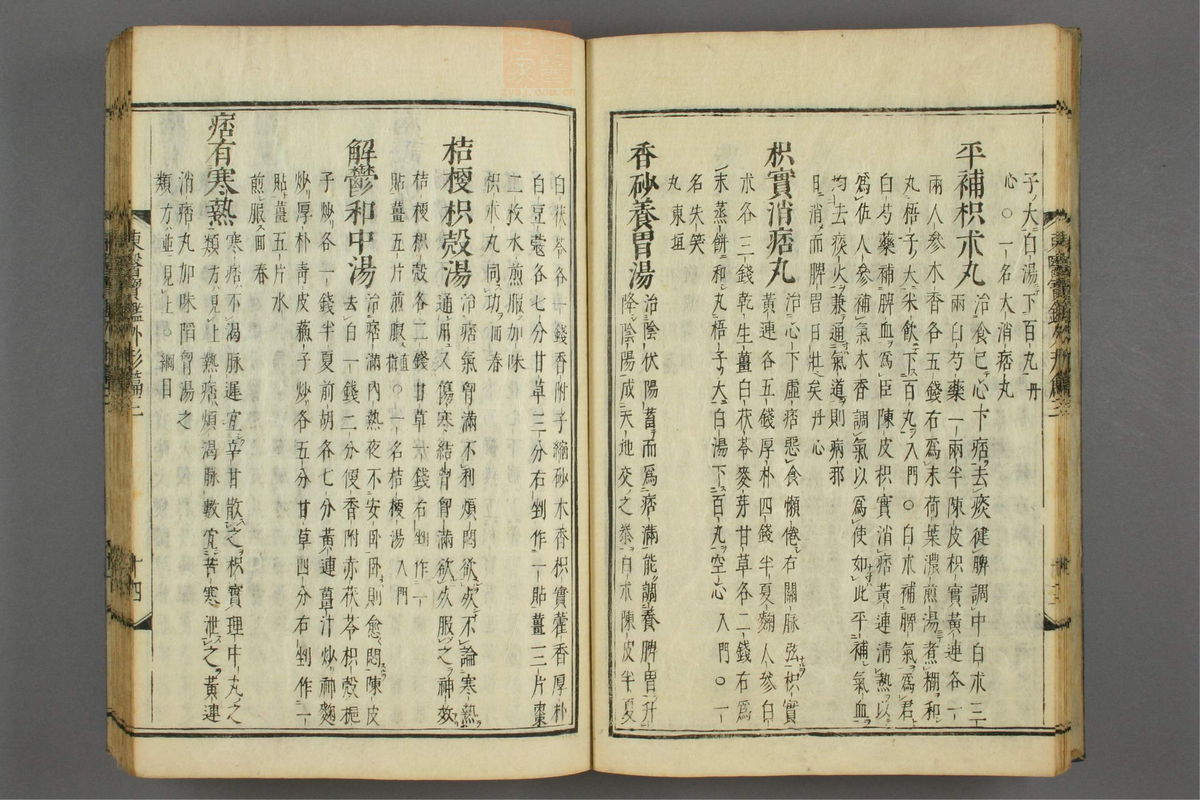 子大白湯下百丸丹
心○一名大消痞丸
平補枳朮丸
治食已心下痞去痰健脾調中白朮三
兩白芍藥一兩半陳皮枳實黃連各一
兩人參木香各五錢右爲末荷葉濃煎湯煮糊和
丸梧子大米飮下百丸入門○白朮補脾氣爲君
白芍藥補脾血爲臣陳皮枳實消痞黃連清熱以
爲佐人參補氣木香調氣以爲使如此平補氣血
均去痰火兼通氣道則病邪
日消而脾胃日壯矣丹心
枳實消痞丸
治心下虛痞惡食懶倦右關脉弦枳實
黃連各五錢厚朴四錢半夏麴人參白
朮各三錢乾生薑白茯苓麥芽甘草各二錢右爲
末蒸餠和丸梧子大白湯下百丸空心入門○一
名失笑
丸東垣
香砂養胃湯
治陰伏陽蓄而爲痞滿能調養脾胃升
降陰陽成天地交之泰白朮陳皮半夏
白茯苓各一錢香附子縮砂木香枳實藿香厚朴
白豆蔲各七分甘草三分右剉作一貼薑三片棗
二枚水煎服加味
枳朮丸同功回春
桔梗枳殼湯
治痞氣胷滿不利煩悶欲死不論寒熱
通用又傷寒結胷胷滿欲死服之神效
桔梗枳殼各二錢甘草一錢右剉作一
貼薑五片煎服○一名桔梗湯入門
解鬱和中湯
治痞滿內熱夜不安卧卧則愈悶陳皮
去白一錢二分便香附赤茯苓枳殼梔
子炒各一錢半夏前胡各七分黃連薑汁炒神麴
炒厚朴青皮蘇子炒各五分甘草四分右剉作一
貼薑五片水
煎服回春
痞有寒熱
寒痞不渴脉遲宜辛甘散之枳實理中丸之
類方見上熱痞煩渴脉數宜苦寒泄之黃連
消痞丸加味陷胷湯之
類方並見上○綱目
東醫寶鑑外形篇三
十四